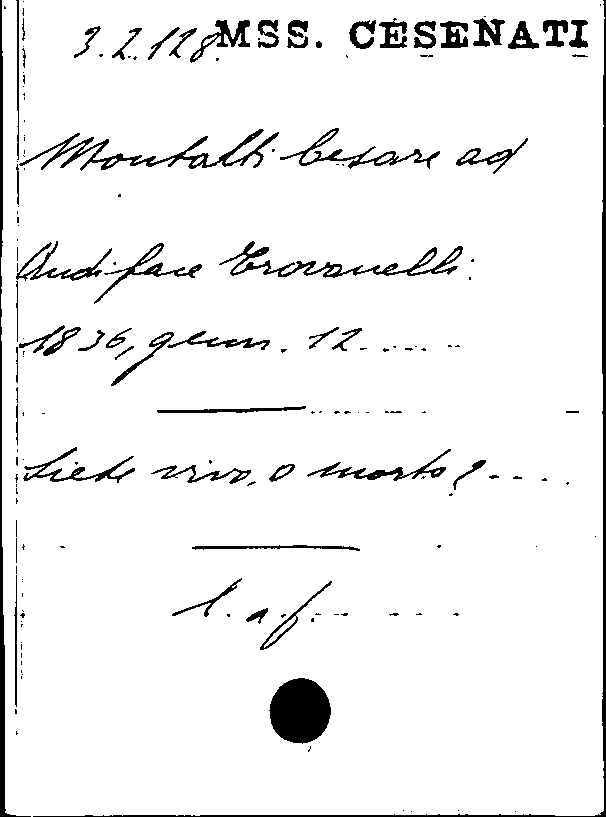 3.2.128 MSS. CESENATI
Montalti Cesare ad
Audiface Trovanelli.
1836, genn. 12
Siete vivo, o morto?
l. a. f.